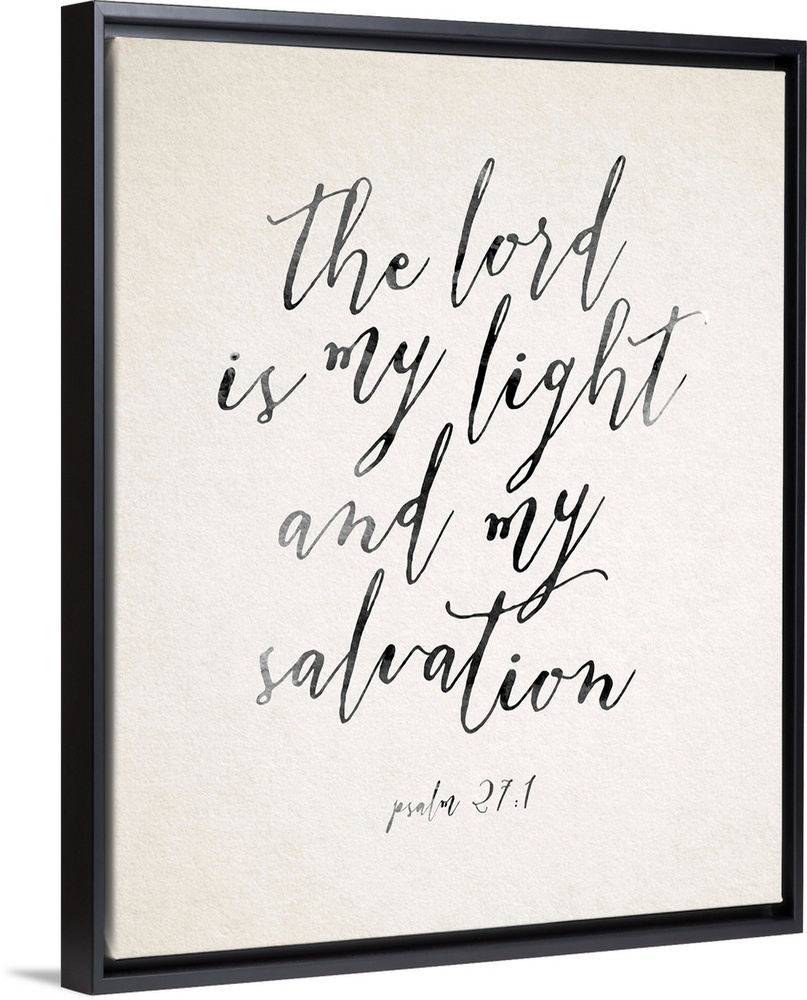 the lord
is my light
and my
salvation
psalm 27:1